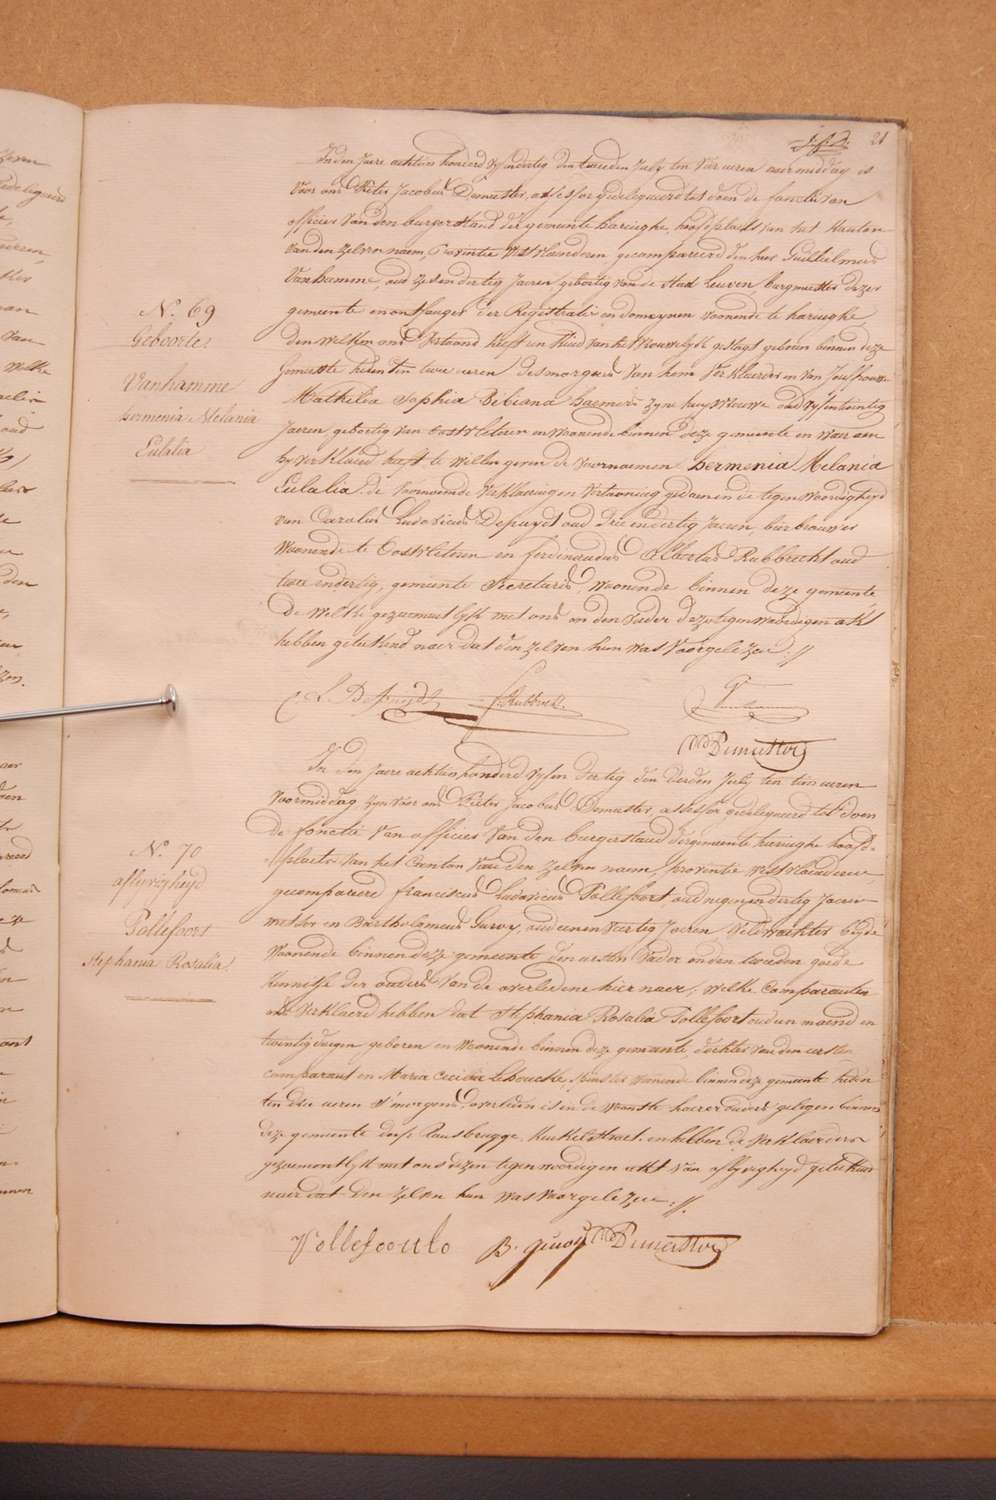 21
In den Jaere achtien honderd vyfendertig den tweeden July ten vier uren naermiddag is
Voor ons Pieter Jacobus Demeester, assessor gedelegueerd tot doen de functie van
officier van den burgerstand der gemeente haringhe, hoofdplaets van het Kanton
van den zelven naem, Provintie Westvlaenderen gecompareerd den heer Guillielmus
Vanhamme, oud zesendertig Jaeren gebortig van de stad Leuven, burgmeester dezer
gemeente en ontfanger der Registratie en domeynen woonende te haringhe
den welken ons vertoond heeft een kind van het vrouwelyk geslagt geboren binnen deze
gemeente heden ten twee uren des morgens van hem verklaerder en van Joufvrouwe
Mathilia Sophia Bibiana Haemers zyne huysvrouwe oud vyfentwintig
Jaeren gebortig van Oostvleteren en woonende binnen deze gemeente en waer aen
hy verklaerd heeft te willen geven de voornaemen Hermenia Melania
Eulalia. de voornoemde verklaeringen vertooning gedaen in de tegenwoordigheyd
van Carolus Ludovicus Depuydt oud drie endertig Jaeren, bierbrouwer
Woonende te Oostvleteren en ferdinandus Albertus Rubbrecht oud
twee endertig, gemeente Secretaris, woonende binnen deze gemeente
de welke gezaementlyk met ons en den vader dezen tegenwoordigen akt
hebben geteekend naer dat den zelven hun was voorgelezen. //
N. 69
Geboorte
Vanhamme
Hermenia Melania
Eulalia
C. L. Depuydt
Rubbrecht
Vanhamme
Demeester
In den Jaere achtien honderd vyfen dertig den derden July ten tien uren
Voormiddag zyn voor ons Pieter Jacobus Demeester assessor gedelegueerd tot doen
de fonctie van officier van den burgerstand der gemeente haringhe hoofd-
plaets van het Canton van den zelven naem, provintie westvlaenderen
gecompareerd franciscus Ludovicus Tollefoort oud negenendertig Jaeren
metser en Bartholomeus Guroy, oud eenen veertig Jaeren Veldwachter beyde
Woonende binnen deze gemeente den eersten vader en den tweeden goede
Kennisse der ouders van de overledene hier naer; welke Comparanten
ons verklaerd hebben dat Stephania Rosalia Tollefoort oud een maend en
twintig dagen geboren en woonende binnen deze gemeente, dochter van den eersten
comparant en Maria Cecilia Leboucke, spinster woonende binnen deze gemeente heden
ten drie uren s'morgens overleden is in de woonste haerer ouders gelegen binnen
deze gemeente dorp Rousbrugge, Kerkestraet. en hebben de verklaerders
gezaementlyk met ons dezen tegenwoordigen akt van aflyvigheyd geteekend
naer dat den zelven hun was voorgelezen. //.
N. 70
aflyvigheyd
Tollefoort
Stephania Rosalia.
Tollefoorto
B. guroy
Demeester